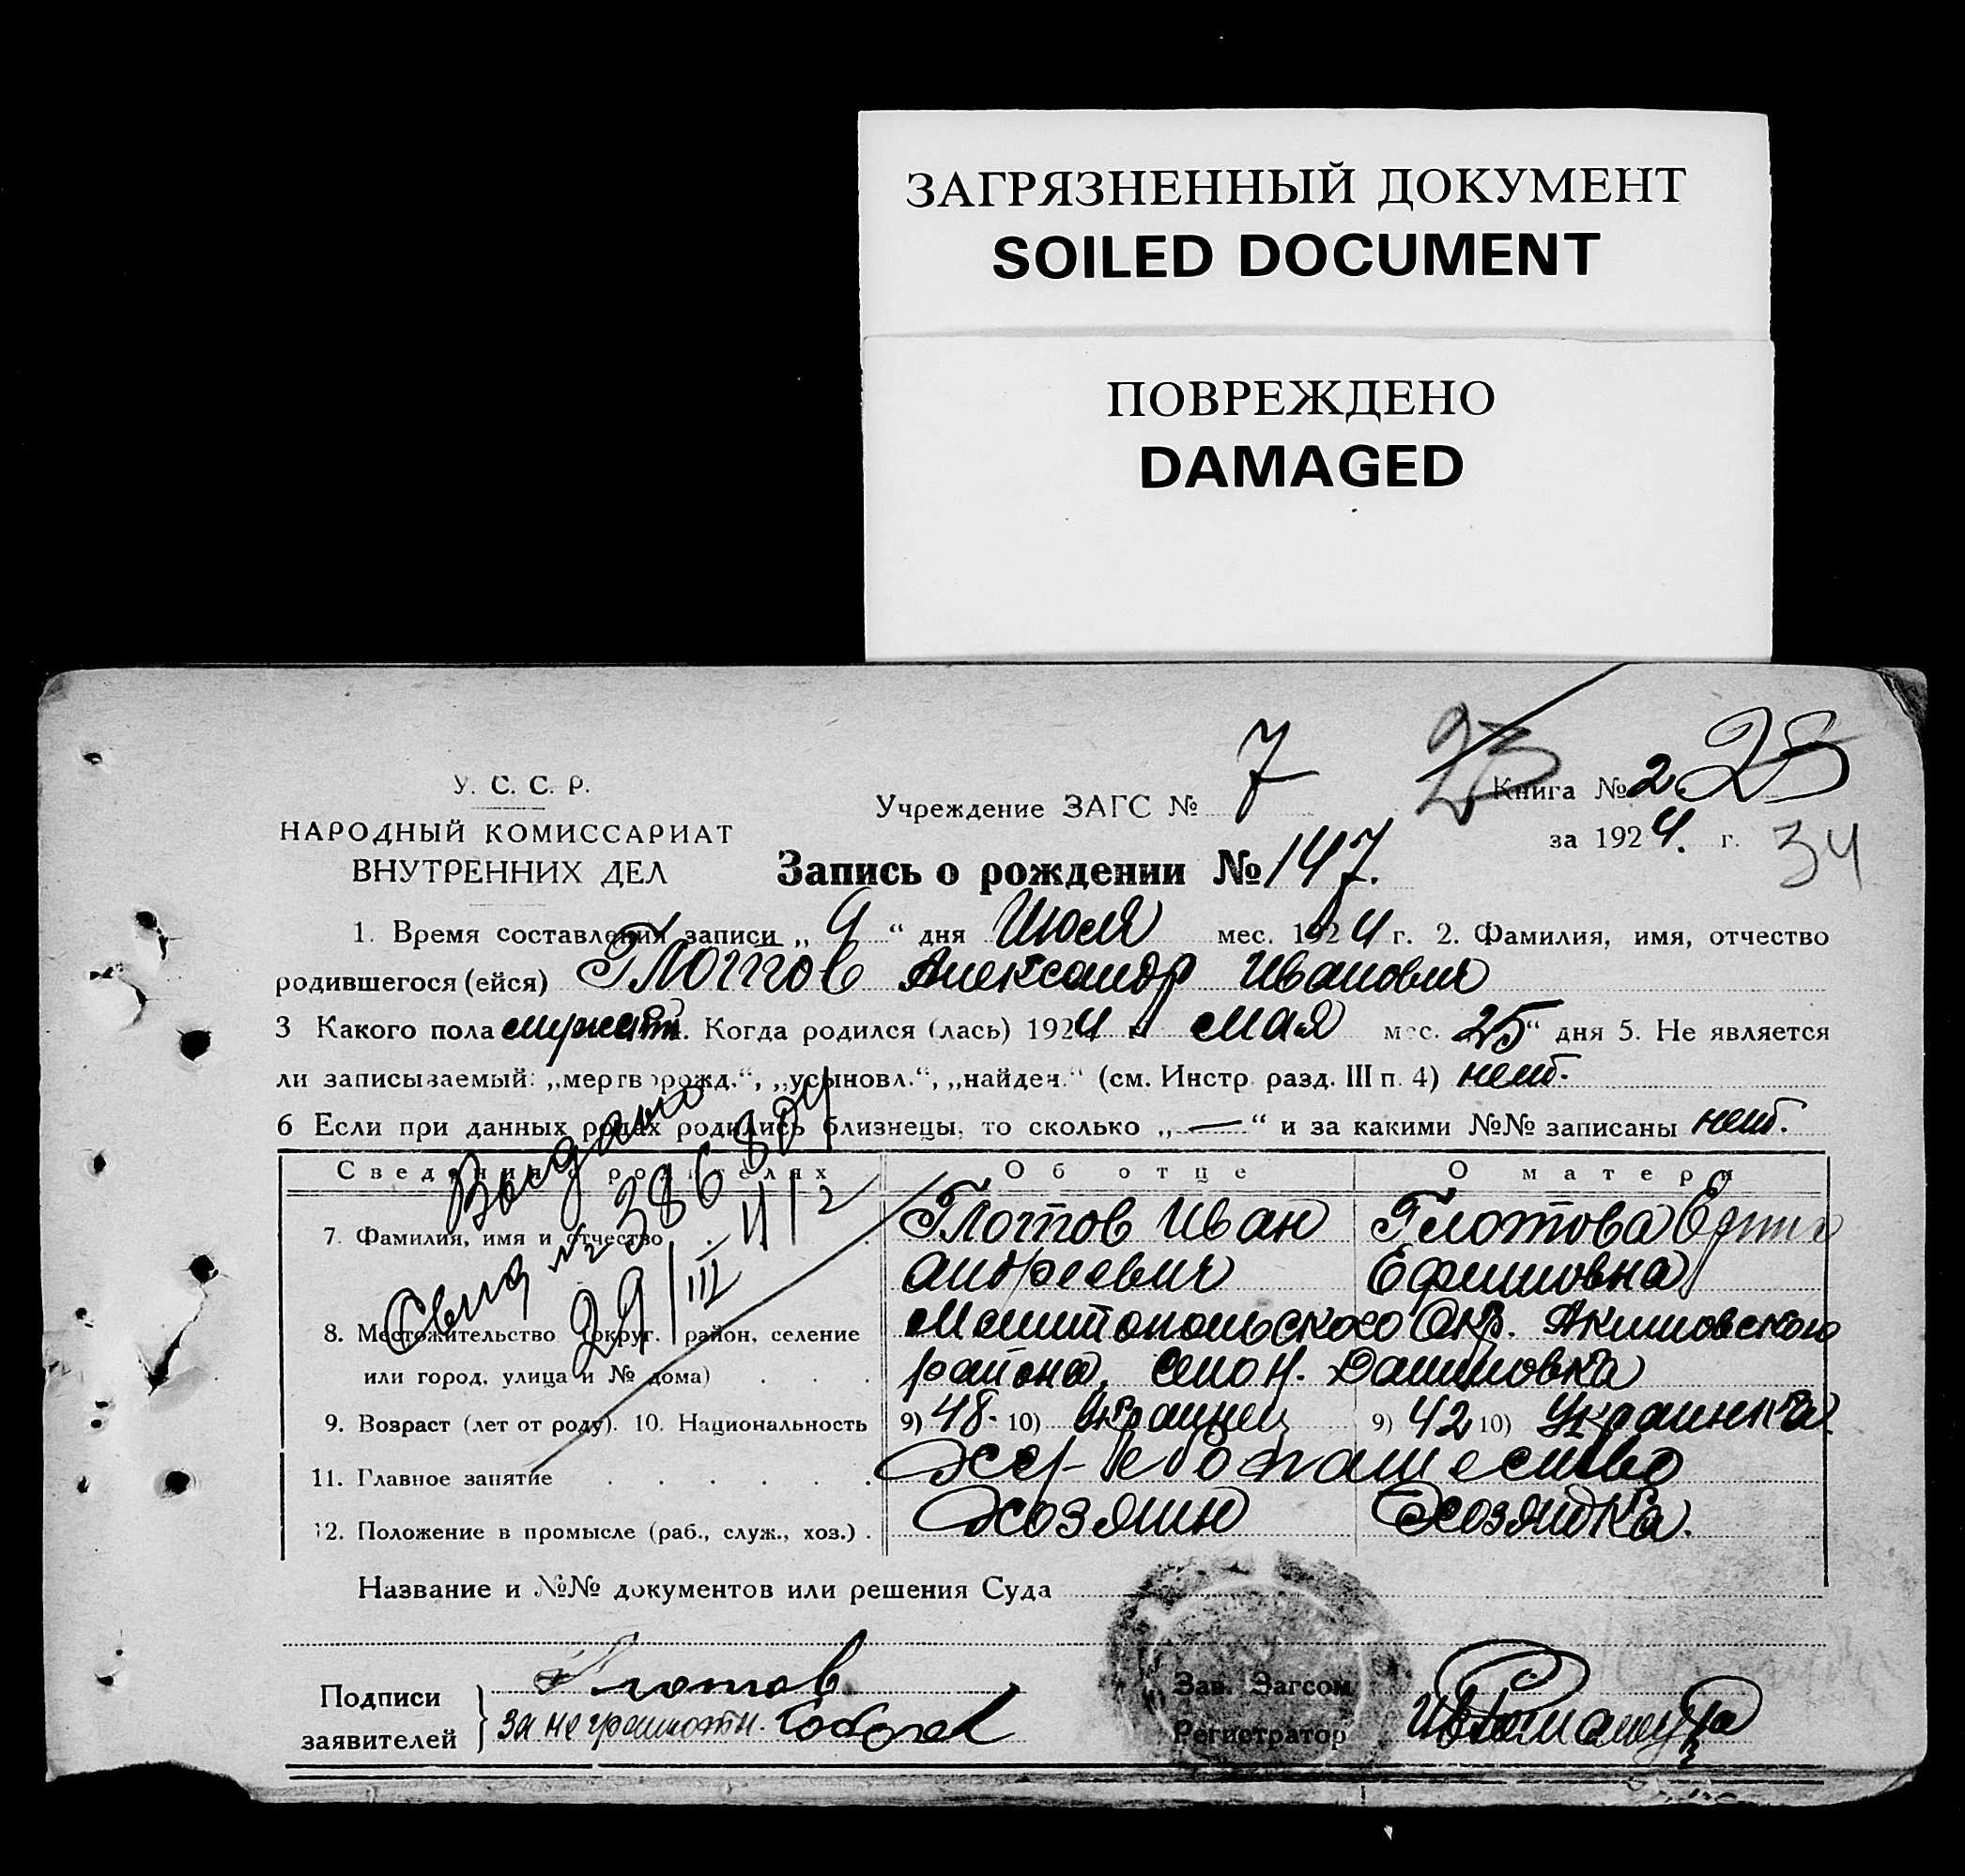 ЗАГРЯЗНЕННЫЙ ДОКУМЕНТ
SOILED DOCUMENT
ПОВРЕЖДЕНО
DAMAGED
У. С. С. Р.
НАРОДНЫЙ КОМИССАРИАТ
ВНУТРЕННИХ ДЕЛ
Учреждение ЗАГС № 7
23
Книга № 2 23
за 1924 г. 34
Запись о рождении № 147.
1. Время составления записи „ 9 “ дня Июля мес. 1924 г. 2. Фамилия, имя, отчество
родившегося (ейся) Глотов Александр Иванович
3 Какого пола мужск. Когда родился (лась) 1924 г. мая мес. 25 “ дня 5. Не является
ли записываемый: „мертворожд.“, „усыновл.“, „найден.“ (см. Инстр. разд. III п. 4) нет.
6 Если при данных родах родились близнецы, то сколько „ — “ и за какими №№ записаны нет.
Сведения о родителях Об отце О матери
7. Фамилия, имя и отчество Глотов Иван Глотова
Андреевич Ефимовна
8. Местожительство (округ. район, селение Мелитопольского Окр. Акимовского
или город, улица и № дома) района, село Н. Даниловка
9. Возраст (лет от роду). 10. Национальность 9) 48. 10) Украинец 9) 42 10) Украинка.
11. Главное занятие Хлебопашество
12. Положение в промысле (раб., служ., хоз.) Хозяин Хозяйка.
Выдано
Свид № 386
29/III
Название и №№ документов или решения Суда
Подписи
заявителей
Глотов
за неграмотн.
Зав. Загсом
Регистратор